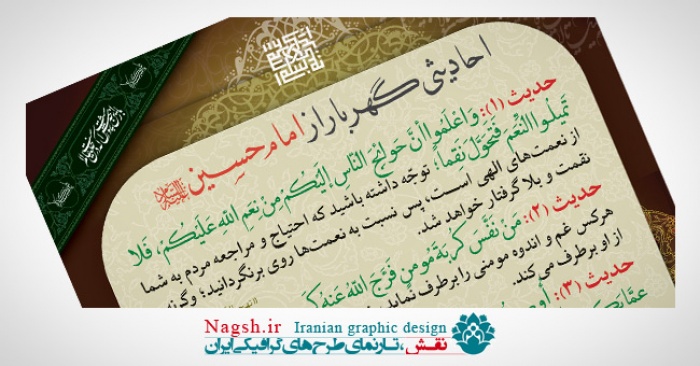 احادیثی گهربار از امام حسین
حدیث (۱): وَ اعْلَمُوا أنَّ حَوائِجَ النّاسِ إلَیْکُمْ مِنْ نِعَمِ اللهِ عَلَیْکُمْ، فَلا
تَمِلُّوا النِّعَمَ فَتَحَوَّلَ نِقَماً؛ توجّه داشته باشید که احتیاج و مراجعه مردم به شما
از نعمت‌های الهی است، پس نسبت به نعمت‌ها روی برنگردانید؛ وگرنه
نقمت و بلا گرفتار خواهد شد.
حدیث (۲): مَنْ نَفَّسَ کُرْبَةَ مُومِنٍ فَرَّجَ اللهُ عَنهُ
هرکس غم و اندوه مومنی را برطرف نماید
از او برطرف می کند.
حدیث (۳):
Nagsh.ir Iranian graphic design
نقش، تارنمای طرح های گرافیکی ایران